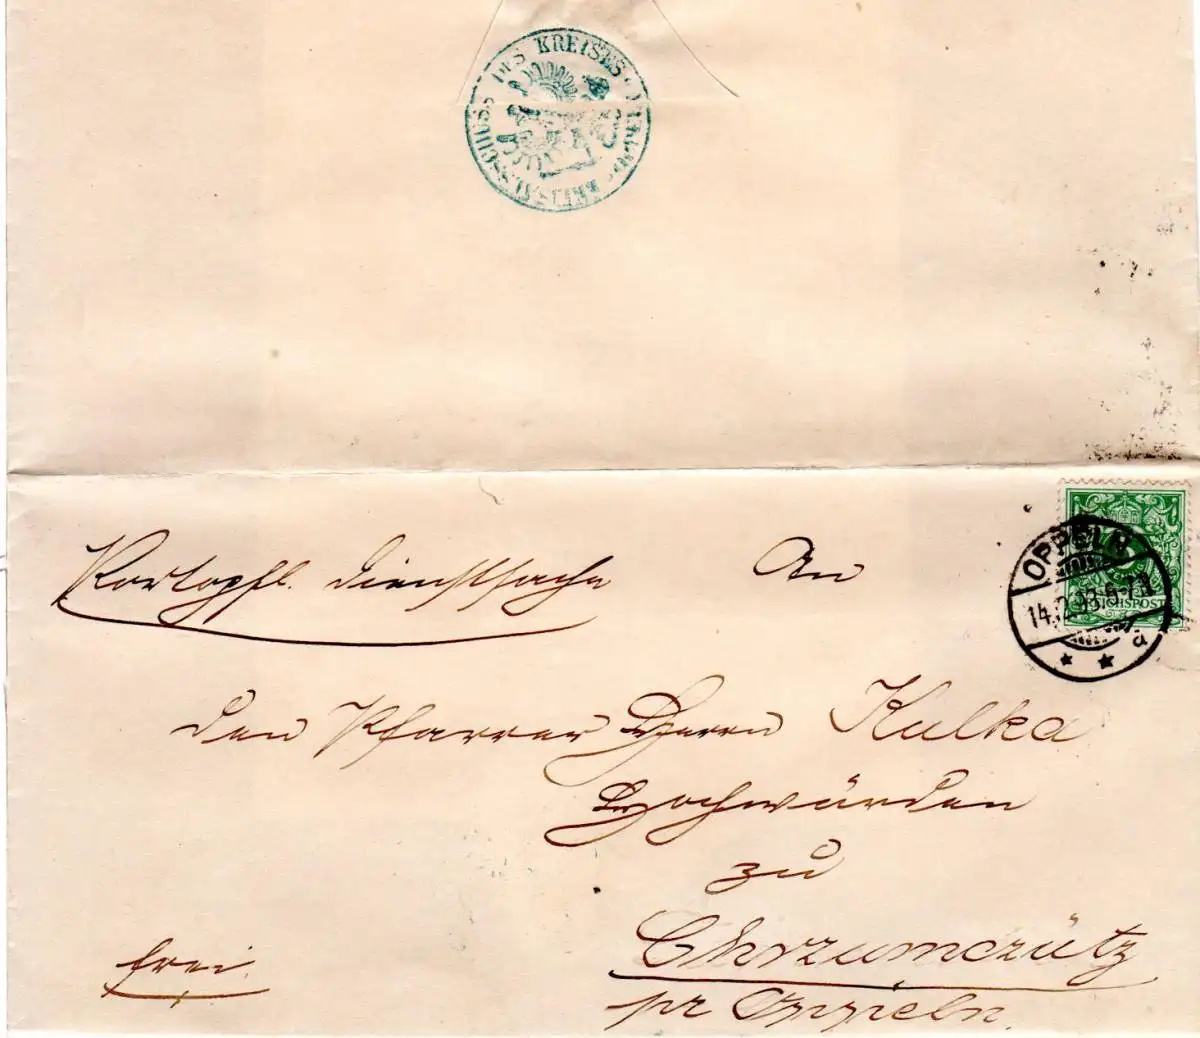 DES KREISES
KREISAUSSCHUSS
Portopfl. Dienstsache
An
OPPELN
14.12.93.6-7N
a
REICHSPOST
den Pfarrer Herrn Kulka
Hochwürden
zu
frei.
Chrzumczütz
pr Oppeln.